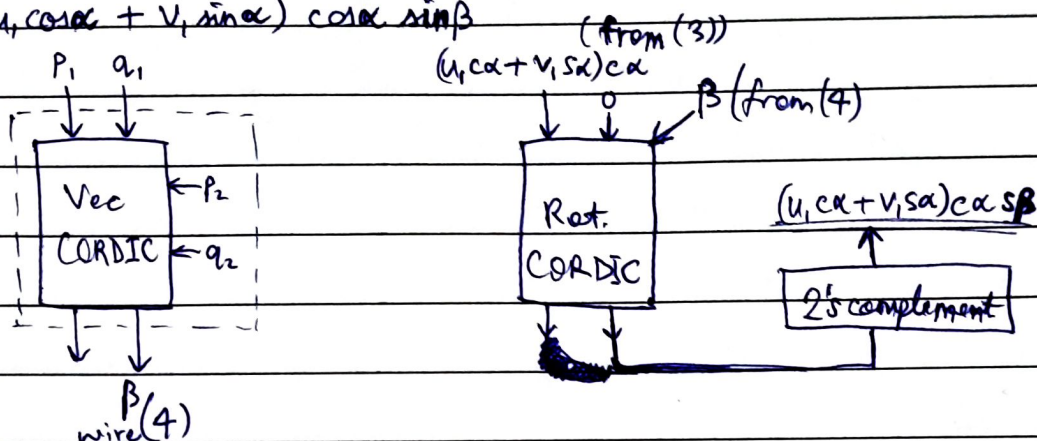 u₁cosα + v₁sinα) cosα sinβ
(from (3))
P₁ q₁
(u₁cα + v₁sα)cα
0
β (from (4)
Vec
CORDIC
←P₂
←q₂
Rot.
CORDIC
(u₁cα + v₁sα)cα sβ
2's complement
β
wire (4)